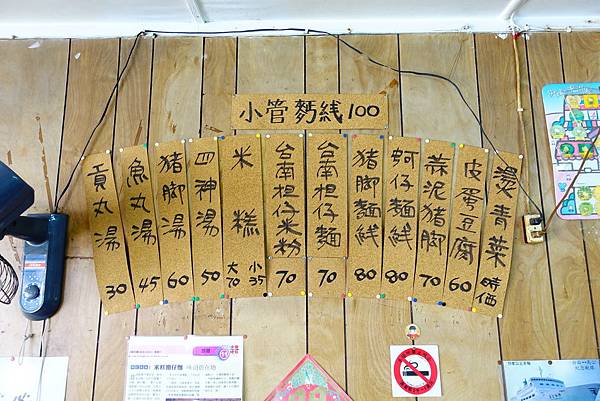 小管麪线100
燙青菜 時価
皮蛋豆腐 60
蒜泥豬脚 70
蚵仔麵线 80
豬脚麵线 80
台南担仔麵 70
台南担仔米粉 70
米糕 大70 小35
四神湯 50
豬脚湯 60
魚丸湯 45
貢丸湯 30